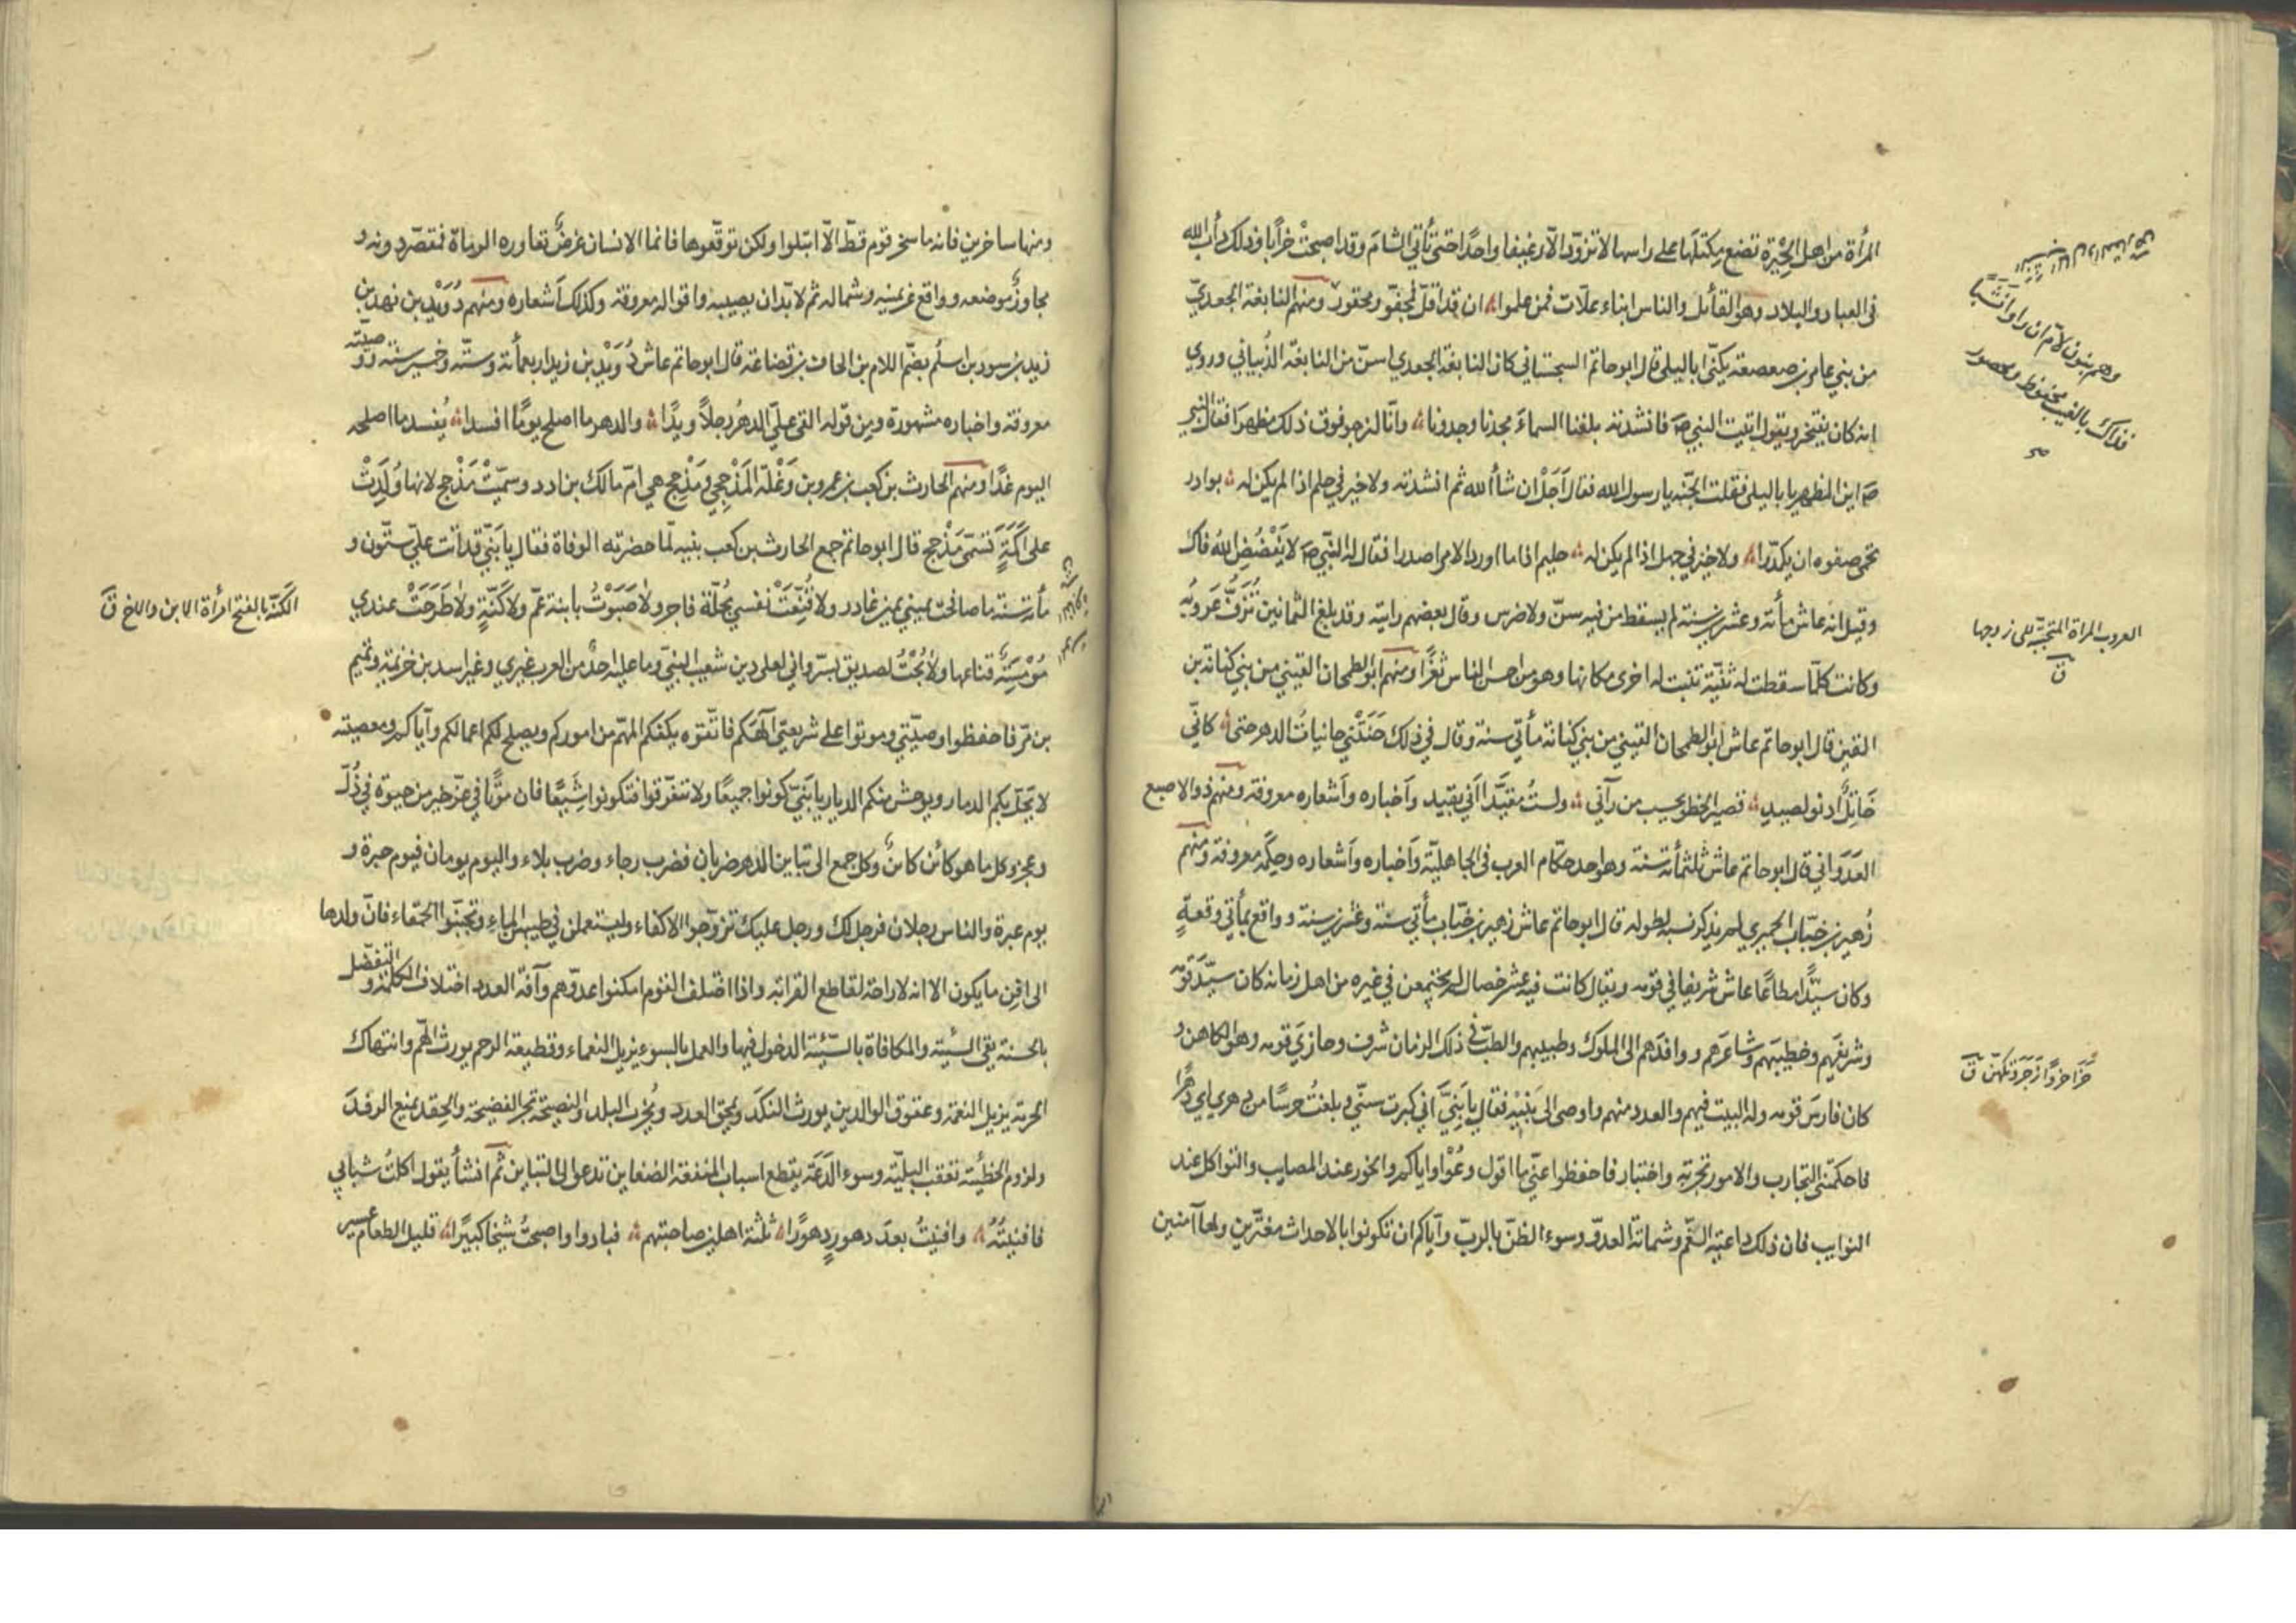 المرأة من اهل الحيرة تضع مكتلها على راسها لا تزوّد الّا رغيفا واحدًا حتى تأتي الشام وقد اصبحتْ خرابا وذلك دأب الله
في العباد والبلاد وهو القائل والناس ابناء علّات فمن علموا ان قد اقلّ فمجفوّ ومحقور ومنهم النابغة الجعديّ
من بني عامر بن صعصعة يكنّى ابا ليلى قال ابو حاتم السجستاني كان النابغة الجعدي اسنّ من النابغة الذُبياني وروي
انه كان يفتخر ويقول اتيت النبي صم فانشدته بلغنا السماءَ مجدنا وجدودنا وانّا لنرجو فوق ذلك مظهرا فقال النبي
صم اين المظهر يا با ليلى فقلت الجنّة يا رسول الله فقال اَجَلْ ان شاء الله ثم انشدته ولا خير في حلم اذا لم يكن له بوادر
تحمي صفوه ان يكدّرا ولا خير في جهل اذا لم يكن له حليم اذا ما اورد الامر اصدرا فقال له النبي صم لا يَفْضُضِ اللهُ فاك
وقيل انه عاش مأة وعشرين سنة لم يسقط من فيه سنّ ولا ضرس وقال بعضهم رايته وقد بلغ الثمانين تُزَفُّ عَروبُه
وكانت كلّما سقطت له ثنيّة تنبت له اخرى مكانها وهو من احسن الناس ثغرًا ومنهم ابو الطمحان القيني من بني كنانة بن
القين قال ابو حاتم عاش ابو الطمحان القيني من بني كنانة مأتي سنة وقال في ذلك حَنَتْني حانياتُ الدهر حتى كانّي
خَاتِلٌ ادنو لصيدِ قصير الخطو يحسب من رآني ولستُ مقيَّدا اَني بقيد وَاخباره وَاشعاره معروفة ومنهم ذو الاصبع
العَدَوَاني قال ابو حاتم عاش ثلثمأة سنة وهو احد حكّام العرب في الجاهليّة وَاخباره وَاشعاره وحِكَمه معروفة ومنهم
زُهير بن خبّاب الحميري لم يذكر نسبه لطوله قال ابو حاتم عاش زهير بن خبّاب مأتي سنة وعشرين سنة وواقع بمأتي وقعةٍ
وكان سيّدًا مطاعًا عاش شريفا في قومه ويقال كانت فيه عشر خصال لم يجتمعن في غيره من اهل زمانه كان سيّدَ قومه
وشريفَهم وخطيبَهم وشاعرَهم ووافدَهم الى الملوك وطبيبهم والطبّ في ذلك الزمان شرف وحازيَ قومه وهو الكاهن و
كان فارسَ قومه وله البيت فيهم والعدد منهم واوصى الى بَنيْه فقال يا بَنِيَّ اني كبرت سنّي وبلغتُ حرسًا من دهري اي دهرًا
فاحكمتْني التجارب والامور تجربة واختبار فاحفظوا عنّي ما اقول وعُوْا واياكم والخور عند المصايب والتواكل عند
النوايب فان ذلك داعية الغمّ وشماتة العدوّ وسوء الظنّ بالربّ وايّاكم ان تكونوا بالاحداث مغترّين ولها آمنين
وهم بنون لامّ ان راوا نشبًا
فذاك بالغيب محفوظ ومحصور
صح
العروب المراة المتحبّبة الى زوجها
ق
حَزَا حزوًا زَجَرَ وتكهّن ق
ومنها ساخرين فانه ما سخر قوم قطّ الّا ابتلوا ولكن توقّعوها فانما الانسان غرضٌ تعاوره الرماة فمقصّر دونه و
مجاوزٌ موضعه وواقع عن يمينه وشماله ثم لا بدّ ان يصيبه واقواله معروفة وكذلك اشعاره ومنهم دُوَيْد بن نهد بن
زيد بن سود بن اسلُم بضمّ اللام بن الحاف بن قضاعة قال ابو حاتم عاش دُوَيْد بن زيد اربعمأة وستّة وخمسين سنة ووصيته
معروفة واخباره مشهورة ومن قوله القى علَيّ الدهرُ رجلًا ويدًا والدهر ما اصلح يومًا افسدا يُفسد ما اصلحه
اليوم غدًا ومنهم الحارث بن كعب بن عمرو بن وَعْلَة المَذْحِجي ومَذْحِج هي امّ مالك بن ادد وسمّيتْ مَذْحج لانها وُلِدَتْ
على اَكَمَةٍ تسَمّى مَذْحج قال ابو حاتم جمع الحارث بن كعب بنيه لمّا حضرته الوفاة فقال يا بَنيّ قد اتت عليّ ستّون و
مأة سنة ما صافحتْ يميني يمين غادر ولا قُنِّعتْ نفسي بخلّة فاجر ولا صَبَوْتُ بابنة عمّ ولا كَنّةٍ ولا طَرَحَتْ عندي
مُوْمِسَةٌ قناعها ولا بُحْتُ لصديق بسرّ واني لعلى دين شعيب النبيّ وما عليه احدٌ من العرب غيري وغير اسد بن خزيمة وتميم
بن مرّ فاحفظوا وصيّتي وموتوا على شريعتي الهكم فاتّقوه يكفكم المهمّ من اموركم ويصلح لكم اعمالكم وايّاكم ومعصيته
لا يحلّ بكم الدمار ويوحش منكم الديار يا بَنيّ كونوا جميعًا ولا تتفرّقوا فتكونوا شِيَعًا فان موتًا في عزّ خير من حيوة في ذُلّ
وعجز وكل ما هو كائن كائنٌ وكل جمع الى تباين الدهر ضربان فضرب رجاء وضرب بلاء واليوم يومان فيوم حبرة و
يوم عبرة والناس رجلان فرجل لك ورجل عليك تزوّجوا الاكفاء وليستعملن في طيبهن الماء وتجنّبوا الحمقاء فانّ ولدها
الى اَفِن ما يكون الا انه لا راحة لقاطع القرابة واذا اختلف القوم امكنوا عدوّهم وآفة العدد اختلاف الكلمة والتفضّل
بالحسنة يقي السيّئة والمكافاة بالسيّئة الدخول فيها والعمل بالسوء يزيل النعماء وقطيعة الرحم يورث الهمّ وانتهاك
الحرمة يزيل النعمة وعقوق الوالدين يورث النكَد ويمحق العدد ويُخْرِب البلد والنصيحة تجر الفضيحة والحِقد يمنع الرفدَ
ولزوم الخطيئة تعقب البليّة وسوء الدَعَة يقطع اسباب المنفعة الضغاين تدعو الى التباين ثم انشأ يقول اكلتُ شبابي
فافنيتُهُ وافنيتُ بعدَ دهورٍ دهورًا ثلثة اهلين صاحبتهم فبادوا واصبحتُ شيخا كبيرًا قليل الطعام عسير
الكَنّة بالفتح امرأة الابن والاخ ق